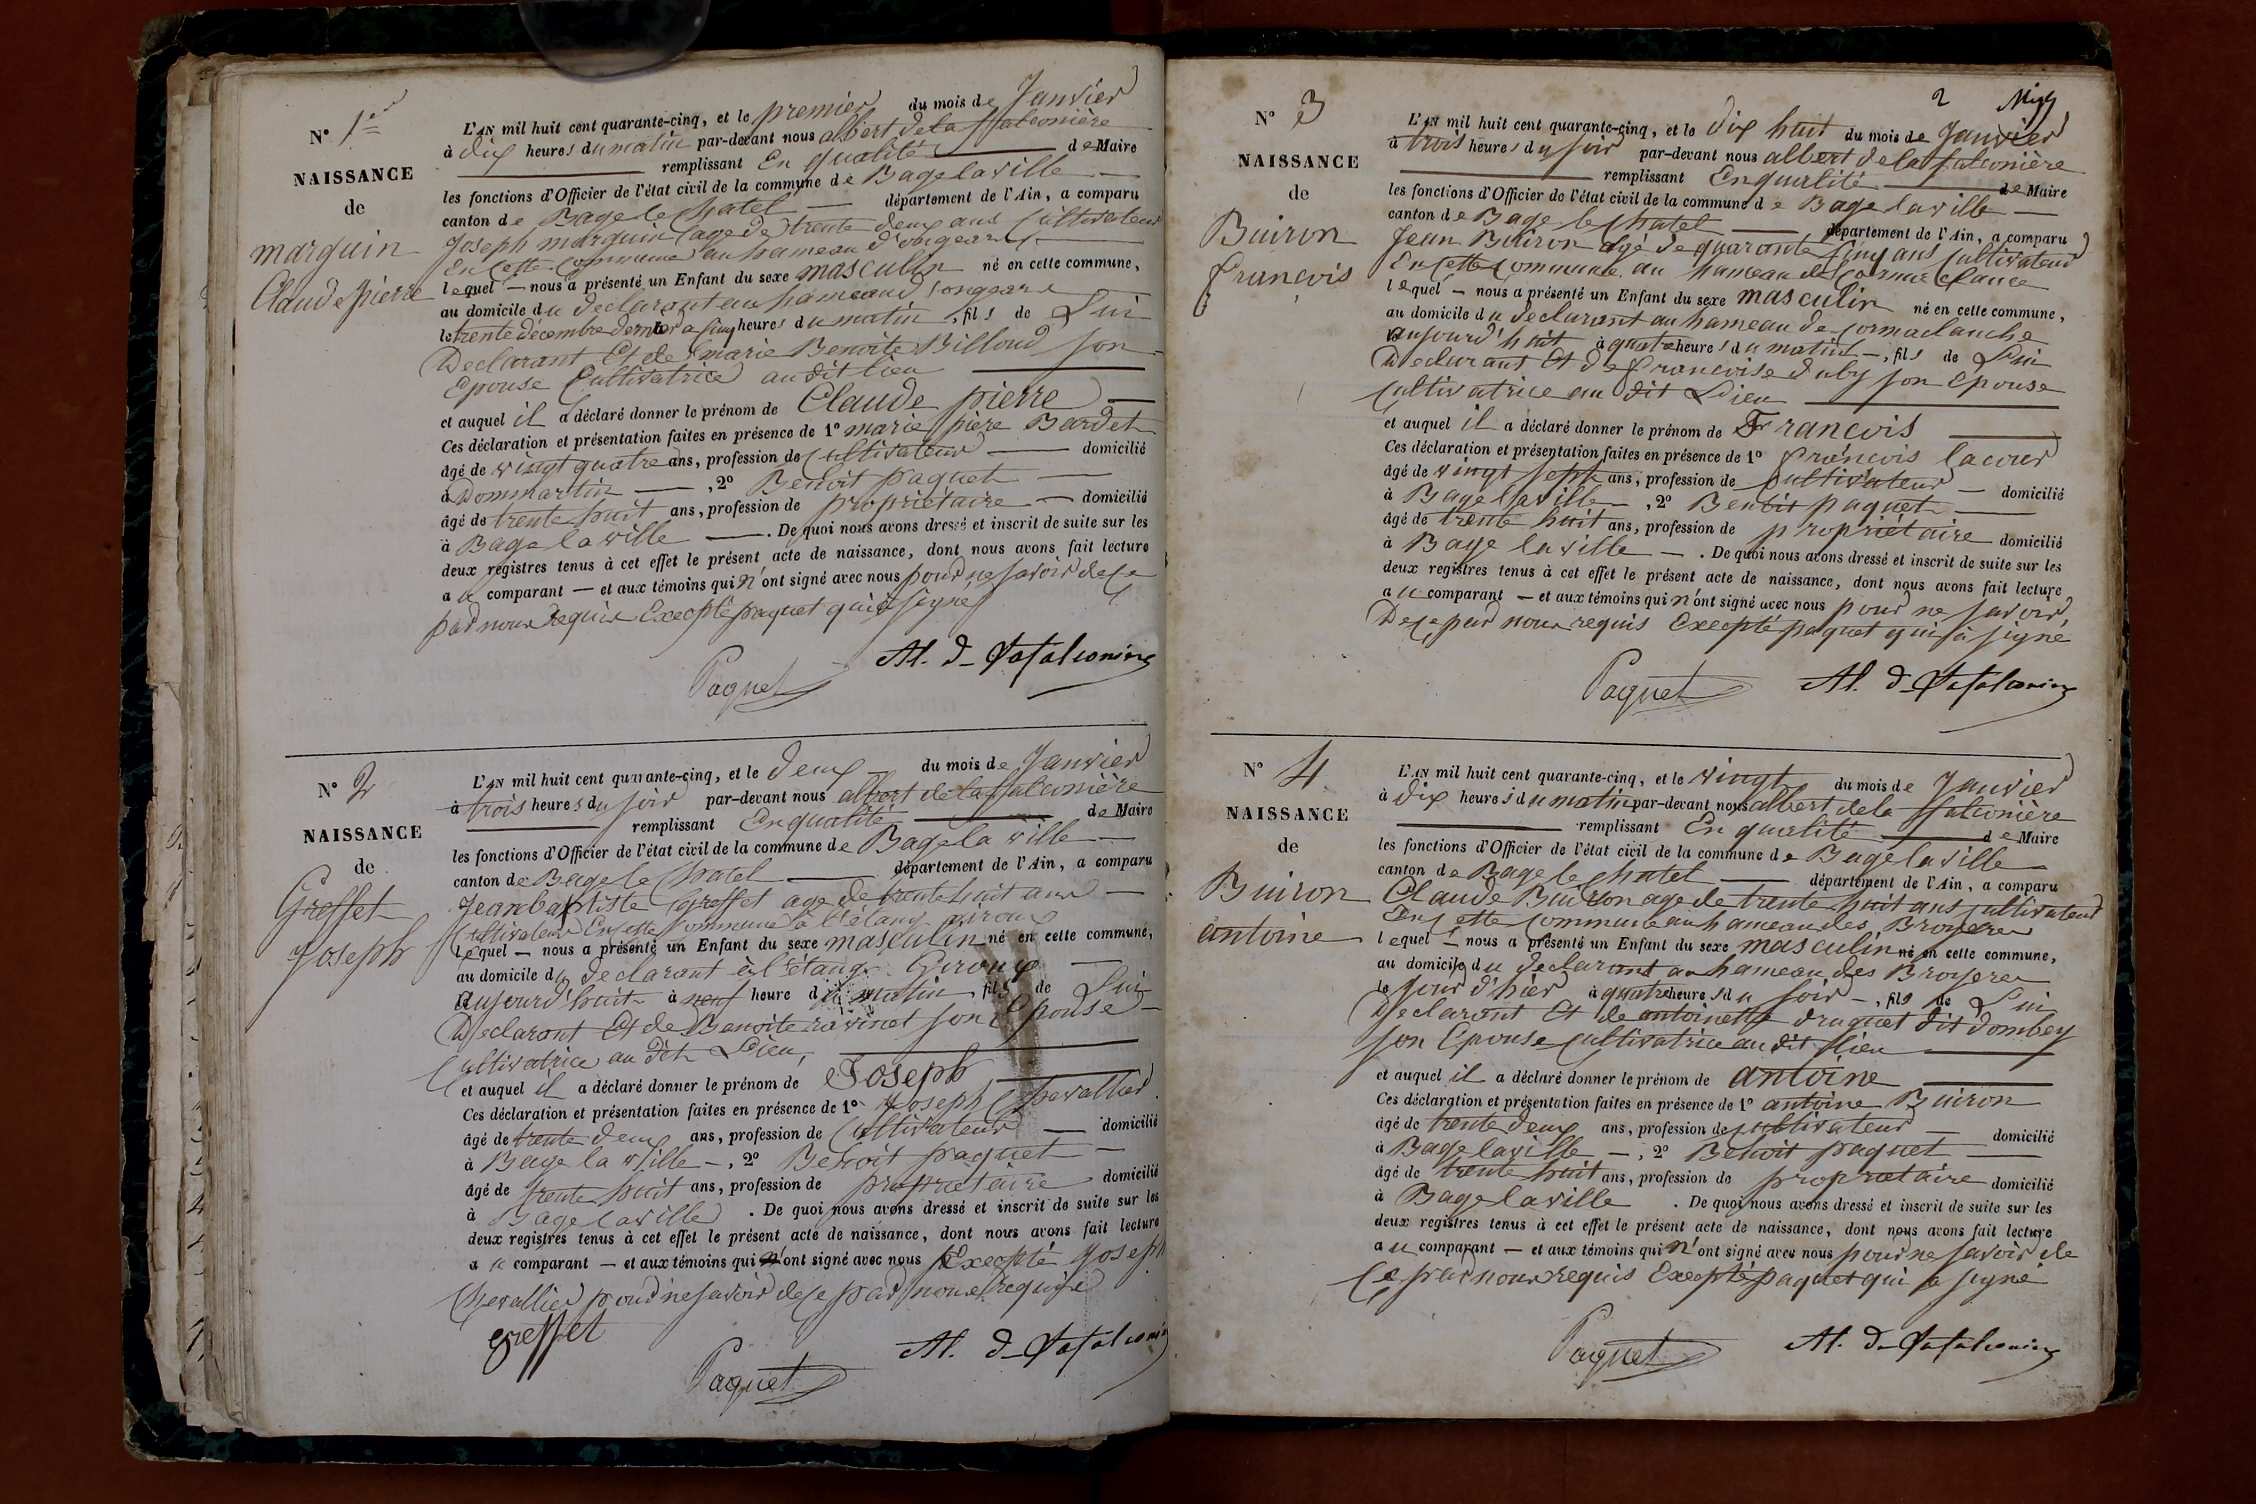 N° 1er
NAISSANCE
de
marguin
Claude pierre
L'AN mil huit cent quarante-cinq, et le premier du mois de Janvier
à dix heures du matin par-devant nous albert de la ffalconière
remplissant En qualité de Maire
les fonctions d'Officier de l'état civil de la commune de Bage la ville
canton de Bage le Chatel département de l'Ain, a comparu
Joseph marguin age de trente deux ans Cultivateur
En Cette Commune au hameau d'
lequel — nous a présenté un Enfant du sexe masculin né en cette commune,
au domicile du declarant au hameau
le trente décembre dernier a Cinq heures du matin, fils de Lui
Declarant Et de marie Benoite Billoud son
Epouse Cultivatrice au dit lieu
et auquel il a déclaré donner le prénom de Claude pierre
Ces déclaration et présentation faites en présence de 1° marie piere Bardet
âgé de vingt quatre ans, profession de Cultivateur domicilié
à Dommartin, 2° Benoit paquet
âgé de trente huit ans, profession de propriétaire domicilié
à Bage la ville. De quoi nous avons dressé et inscrit de suite sur les
deux registres tenus à cet effet le présent acte de naissance, dont nous avons fait lecture
au comparant — et aux témoins qui n'ont signé avec nous pour ne savoir de ce
par nous requis Excepté paquet qui a signé
Paquet Al. d- Lafalconière
N° 2
NAISSANCE
de
Greffet
Joseph
L'AN mil huit cent quarante-cinq, et le deux du mois de Janvier
à trois heures du soir par-devant nous albert de la ffalconière
remplissant En qualité de Maire
les fonctions d'Officier de l'état civil de la commune de Bage la ville
canton de Bage le Chatel département de l'Ain, a comparu
Jean baptiste Greffet age de trente huit ans
Cultivateur En cette Commune à l'étang giroux
lequel — nous a présenté un Enfant du sexe masculin né en cette commune,
au domicile du declarant à l'étang Giroux
aujourd'huit à neuf heure du matin, fils de Lui
Declarant Et de Benoite ravinet son Epouse
Cultivatrice au dit Lieu,
et auquel il a déclaré donner le prénom de Joseph
Ces déclaration et présentation faites en présence de 1° Joseph Chevallier
âgé de trente deux ans, profession de Cultivateur domicilié
à Bage la ville, 2° Benoit paquet
âgé de trente huit ans, profession de proprietaire domicilié
à Bage la ville. De quoi nous avons dressé et inscrit de suite sur les
deux registres tenus à cet effet le présent acte de naissance, dont nous avons fait lecture
au comparant — et aux témoins qui n'ont signé avec nous Excepté Joseph
Chevallier pour ne savoir de ce par nous requis
greffet
Paquet Al. d- Lafalconière
2
N° 3
NAISSANCE
de
Buiron
françois
L'AN mil huit cent quarante-cinq, et le dix huit du mois de Janvier
à trois heures du soir par-devant nous albert de la ffalconière
remplissant En qualité de Maire
les fonctions d'Officier de l'état civil de la commune de Bage la ville
canton de Bage le Chatel département de l'Ain, a comparu
Jean Buiron agé de quarante Cinq ans Cultivateur
En cette Commune au hameau de
lequel — nous a présenté un Enfant du sexe masculin né en cette commune,
au domicile du declarant au hameau de cormaclanche
aujourd'huit à quatre heures du matin, fils de Lui
Declarant Et de francoise duby son Epouse
Cultivatrice au dit Lieu
et auquel il a déclaré donner le prénom de François
Ces déclaration et présentation faites en présence de 1° françois lacour
âgé de vingt sept ans, profession de Cultivateur domicilié
à Bage la ville, 2° Benoit paquet
âgé de trente huit ans, profession de propriétaire domicilié
à Bage la ville. De quoi nous avons dressé et inscrit de suite sur les
deux registres tenus à cet effet le présent acte de naissance, dont nous avons fait lecture
au comparant — et aux témoins qui n'ont signé avec nous pour ne savoir,
De ce par nous requis Excepté paquet qui a signé
Paquet Al. d- Lafalconière
N° 4
NAISSANCE
de
Buiron
antoine
L'AN mil huit cent quarante-cinq, et le vingt du mois de Janvier
à dix heures du matin par-devant nous albert de la ffalconière
remplissant En qualité de Maire
les fonctions d'Officier de l'état civil de la commune de Bage la ville
canton de Bage le Chatel département de l'Ain, a comparu
Claude Buiron age de trente huit ans Cultivateur
En Cette Commune au hameau des Broyeres
lequel — nous a présenté un Enfant du sexe masculin né en cette commune,
au domicile du declarant au hameau des Broyeres
le jour d'hier à quatre heures du soir, fils de Lui
Declarant Et de antoinette druguet dit dombey
son Epouse Cultivatrice au dit lieu
et auquel il a déclaré donner le prénom de antoine
Ces déclaration et présentation faites en présence de 1° antoine Buiron
âgé de trente deux ans, profession de Cultivateur domicilié
à Bage la ville, 2° Benoit paquet
âgé de trente huit ans, profession de proprietaire domicilié
à Bage la ville. De quoi nous avons dressé et inscrit de suite sur les
deux registres tenus à cet effet le présent acte de naissance, dont nous avons fait lecture
au comparant — et aux témoins qui n'ont signé avec nous pour ne savoir de
Ce par nous requis Excepté paquet qui a signé
Paquet Al. d- Lafalconière